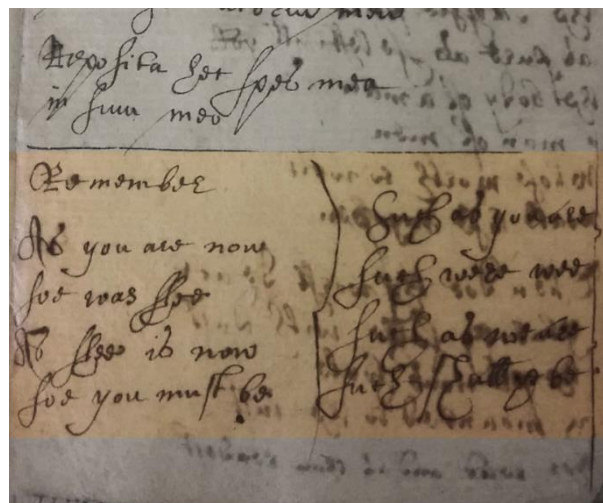 Reposita het spes mea
in sinu meo
Remember
As you are now
soe was shee
As shee is now
soe you must be
Such as you are
such were wee
such as we are
such shall ye be